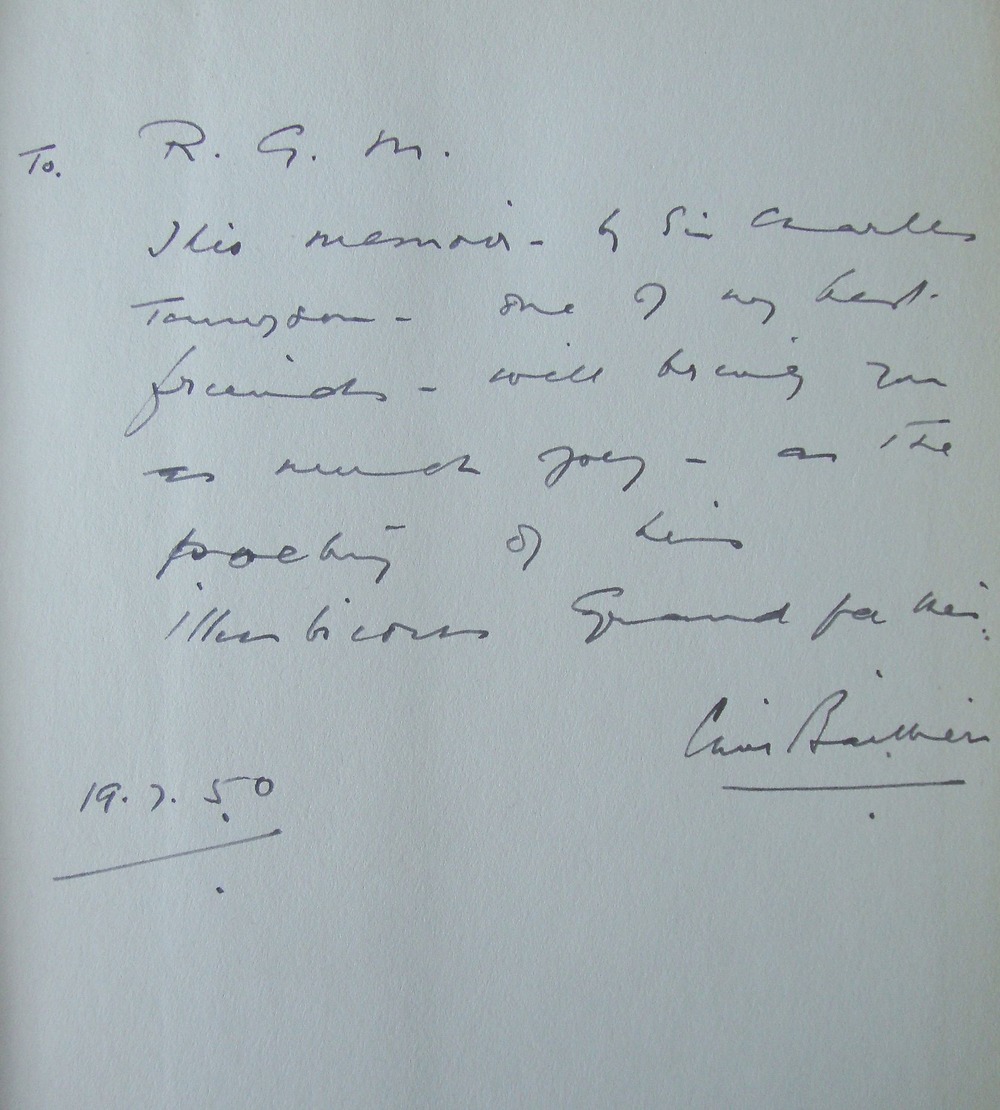 To. R. G. M.
This memoir - by Sir Charles
Tennyson - one of my best
friends - will bring you
as much joy - as the
poetry of his
illustrious Grandfather.
19. 7. 50